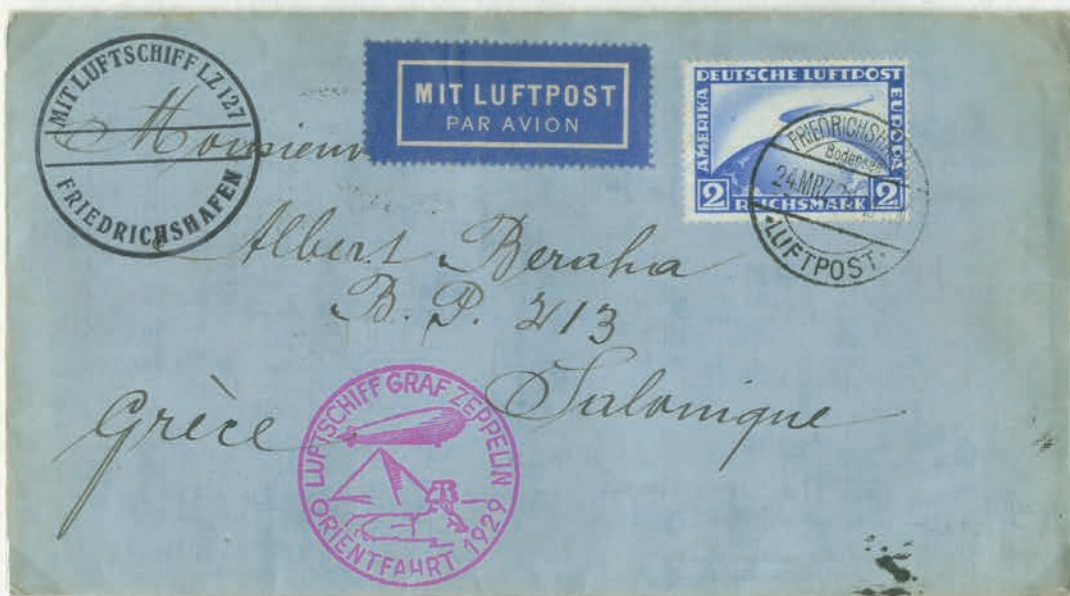 MIT LUFTSCHIFF LZ 127
FRIEDRICHSHAFEN
MIT LUFTPOST
PAR AVION
DEUTSCHE LUFTPOST
AMERIKA
EUROPA
2 REICHSMARK 2
Bodensee
24.MRZ.
LUFTPOST
Monsieur
Albert Beraha
B. P. 213
Salonique
Grèce
LUFTSCHIFF GRAF ZEPPELIN
ORIENTFAHRT 1929